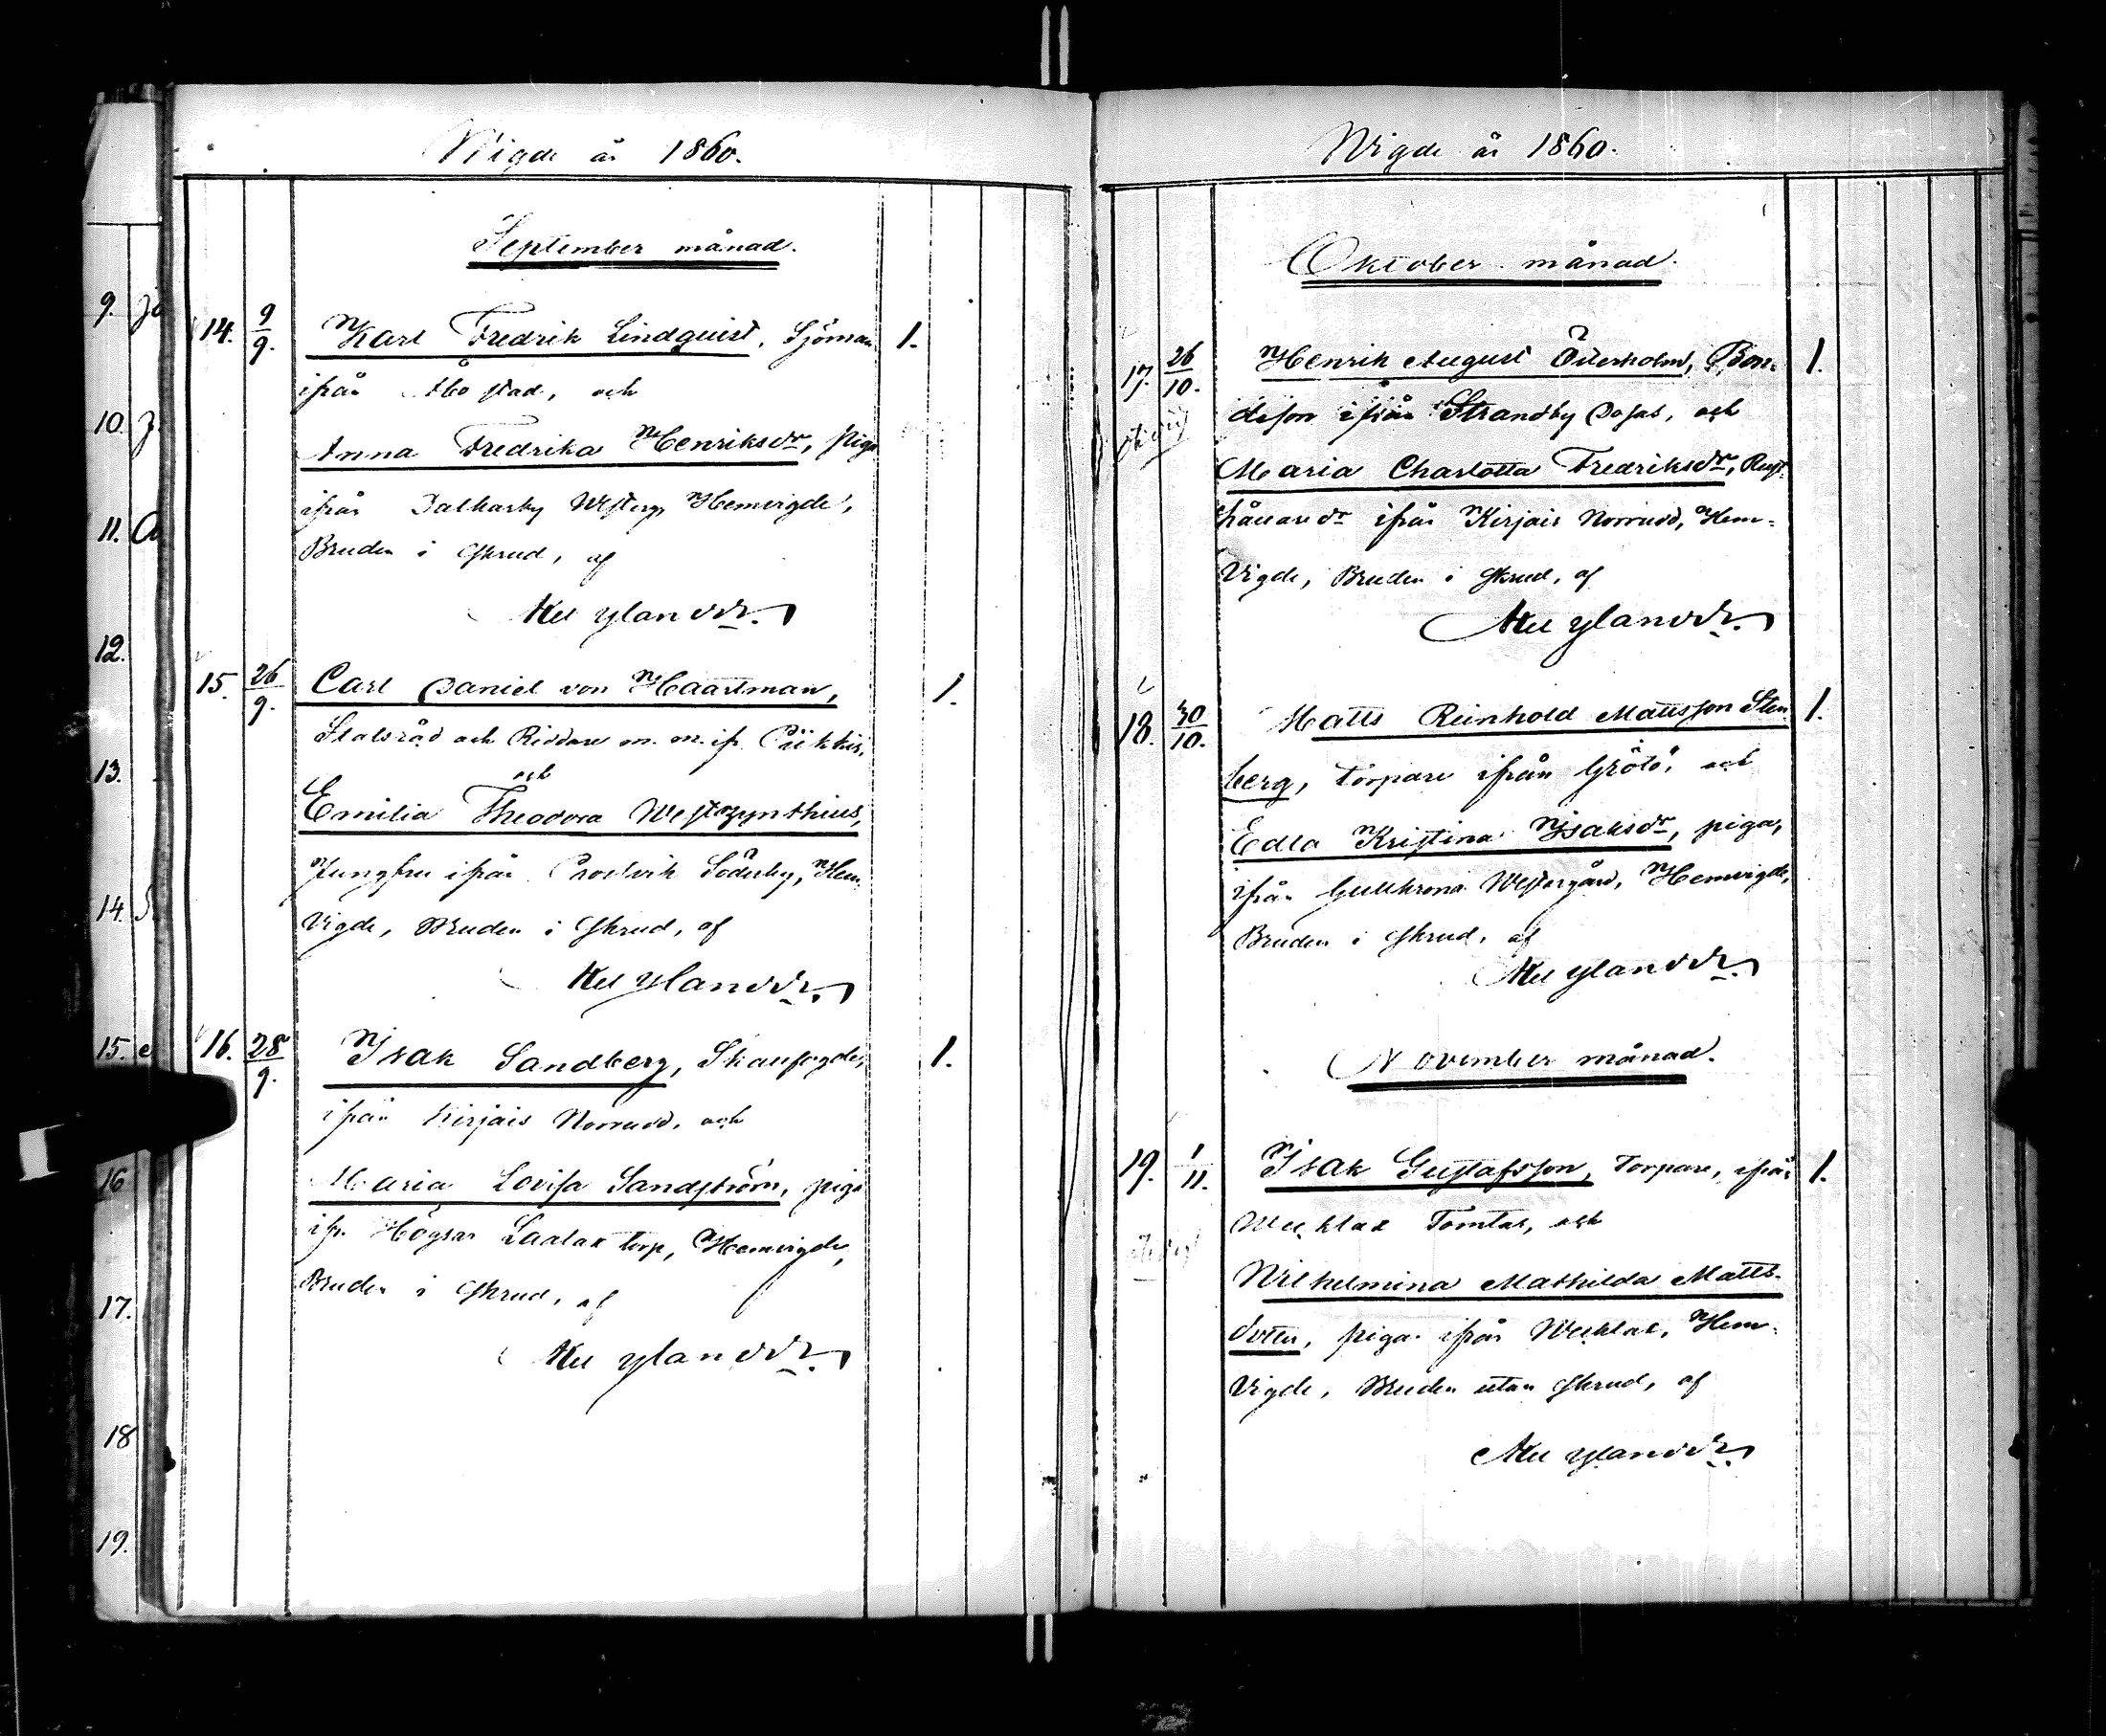 Wigde år 1860.
September månad.
14. 9/9. Karl Fredrik Lindquist, Sjöman 1.
ifrån Åbo stad, och
Anna Fredrika Henriksdr, piga
ifrån Dalkarby Westerg. Hemvigde,
Bruden i skrud, af
Nylander.
15. 26/9. Carl Daniel von Haartman, 1.
Statsråd och Riddare m. m. ifr. Piikkis,
och
Emilia Theodora Westzynthius,
Jungfru ifrån Prostvik Söderby, Hem-
vigde, Bruden i skrud, af
Nylander.
16. 28/9. Isak Sandberg, 1.
ifrån Kirjais Norrudd, och
Maria Lovisa Sandström, piga
ifr. Högsar Ladlax torp, Hemvigde,
Bruden i skrud, af
Nylander.
9.
10.
11.
12.
13.
14.
15.
16
17.
18
19.
Wigde år 1860.
Oktober månad.
17. 26/10. Henrik August Österholm, Bon- 1.
deson ifrån Strandby Dahas, och
Maria Charlotta Fredriksdr, Rust-
hållaredr ifrån Kirjais Norrudd, Hem-
vigde, Bruden i skrud, af
Nylander.
18. 30/10. Matts Reinhold Mattsson Sten- 1.
berg, Torpare ifrån Grötö, och
Edla Kristina Isaksdr, piga,
ifrån Gullkrona Westergård, Hemvigde,
Bruden i skrud, af
Nylander.
November månad.
19. 1/11. Isak Gustafsson, Torpare, ifrån 1.
Tomtas, och
Wilhelmina Mathilda Matts-
dotter, piga ifrån Hem-
vigde, Bruden utan skrud, af
Nylander.